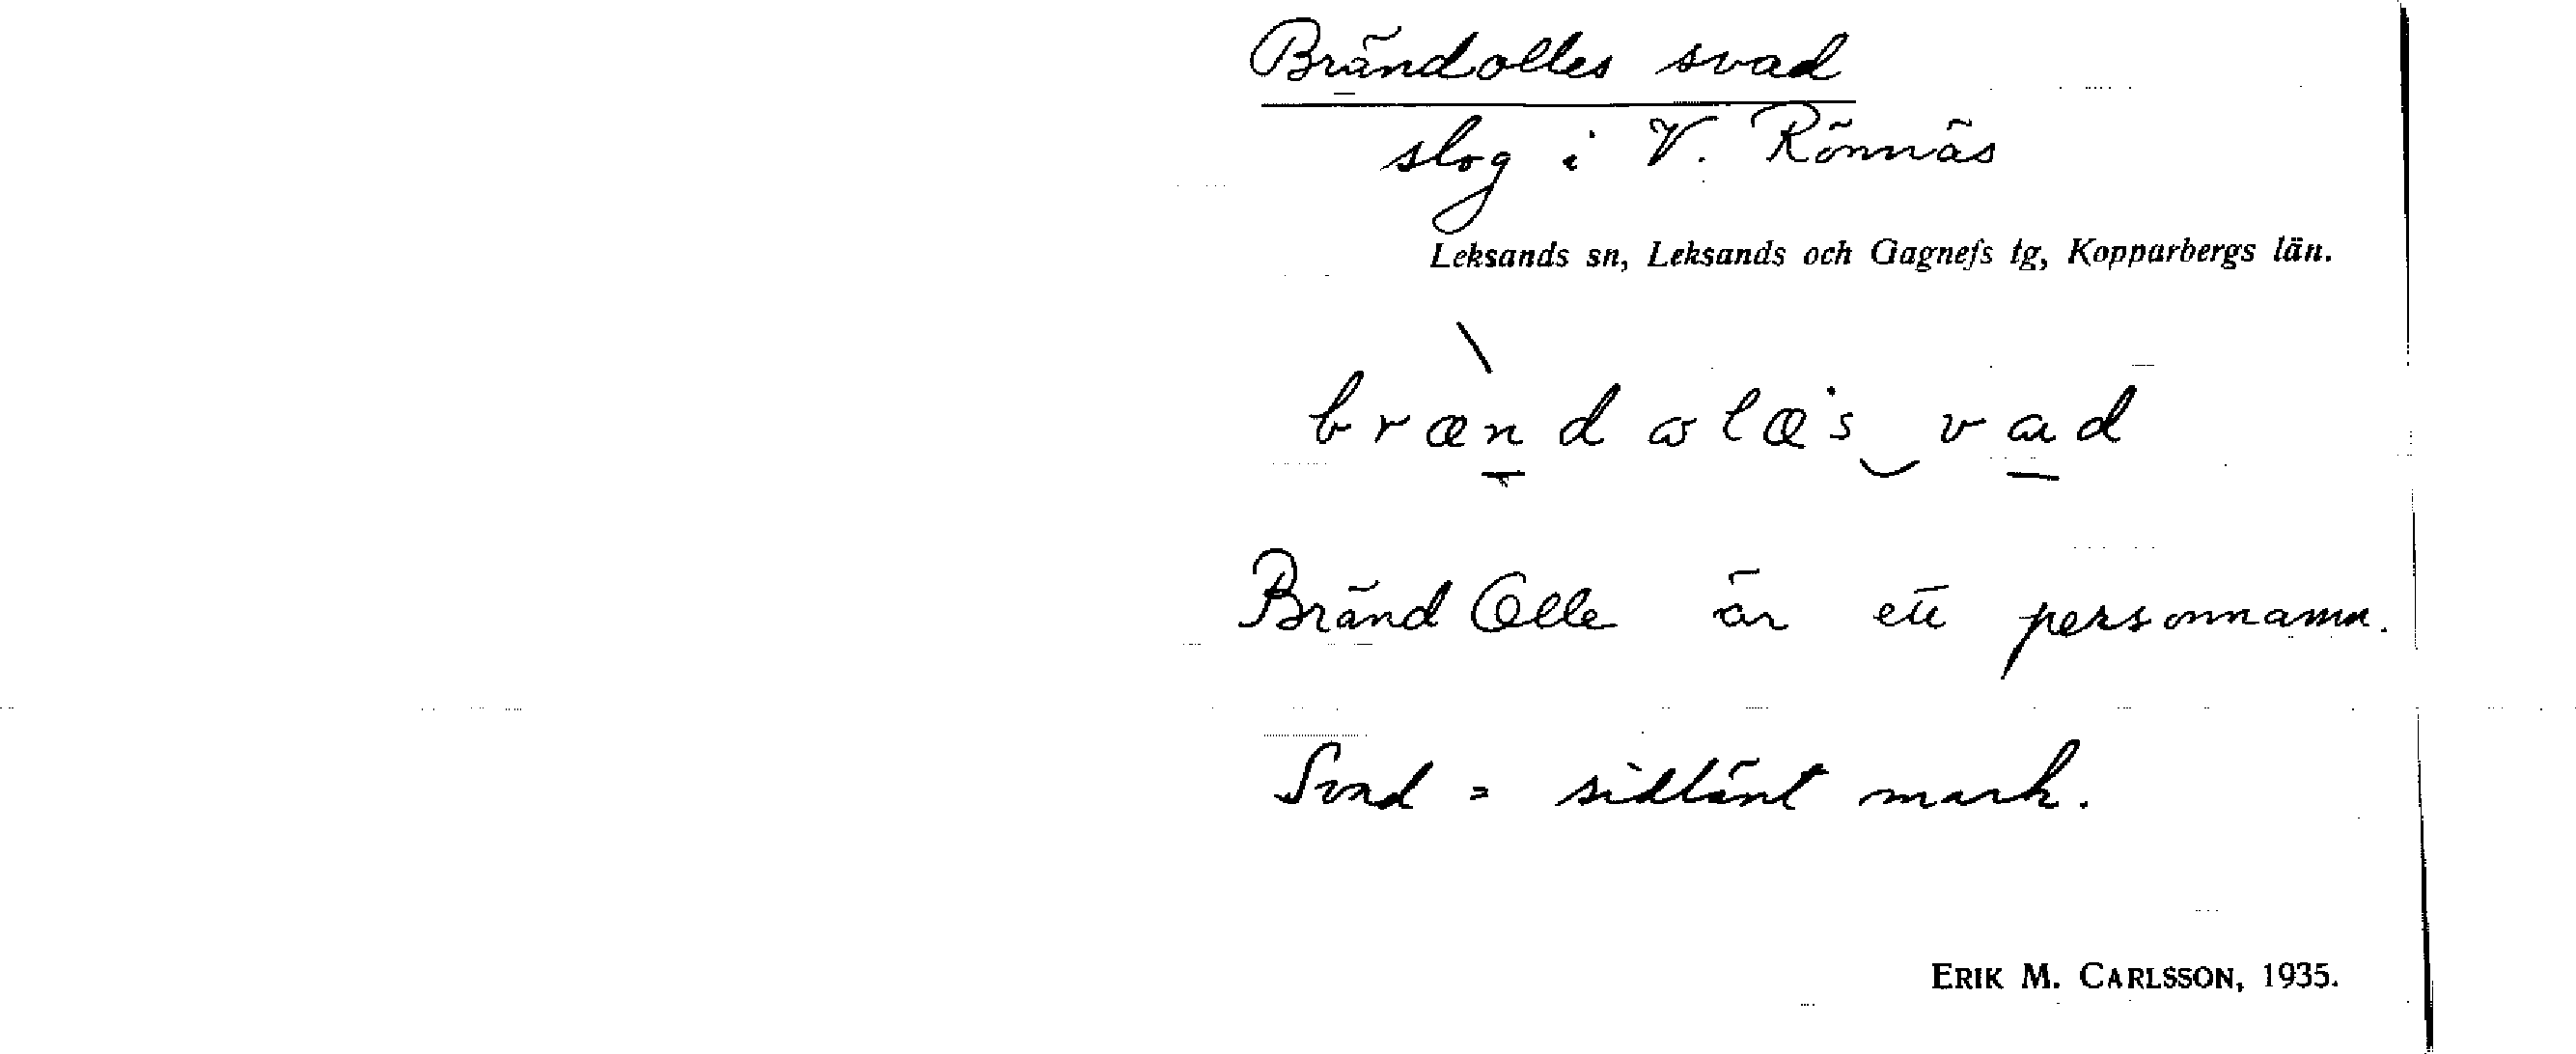 Brändolles svad
slog i V. Rönnäs
Leksands sn, Leksands och Gagnefs tg, Kopparbergs län.
brændɷlæ·s‿vɑd
Bränd Olle är ett personnamn.
Svad = sidlänt mark.
ERIK M. CARLSSON, 1935.